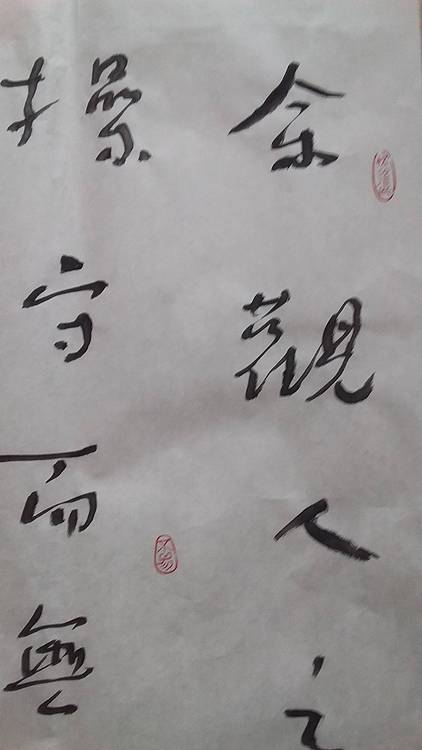 余觀人之
操守而無